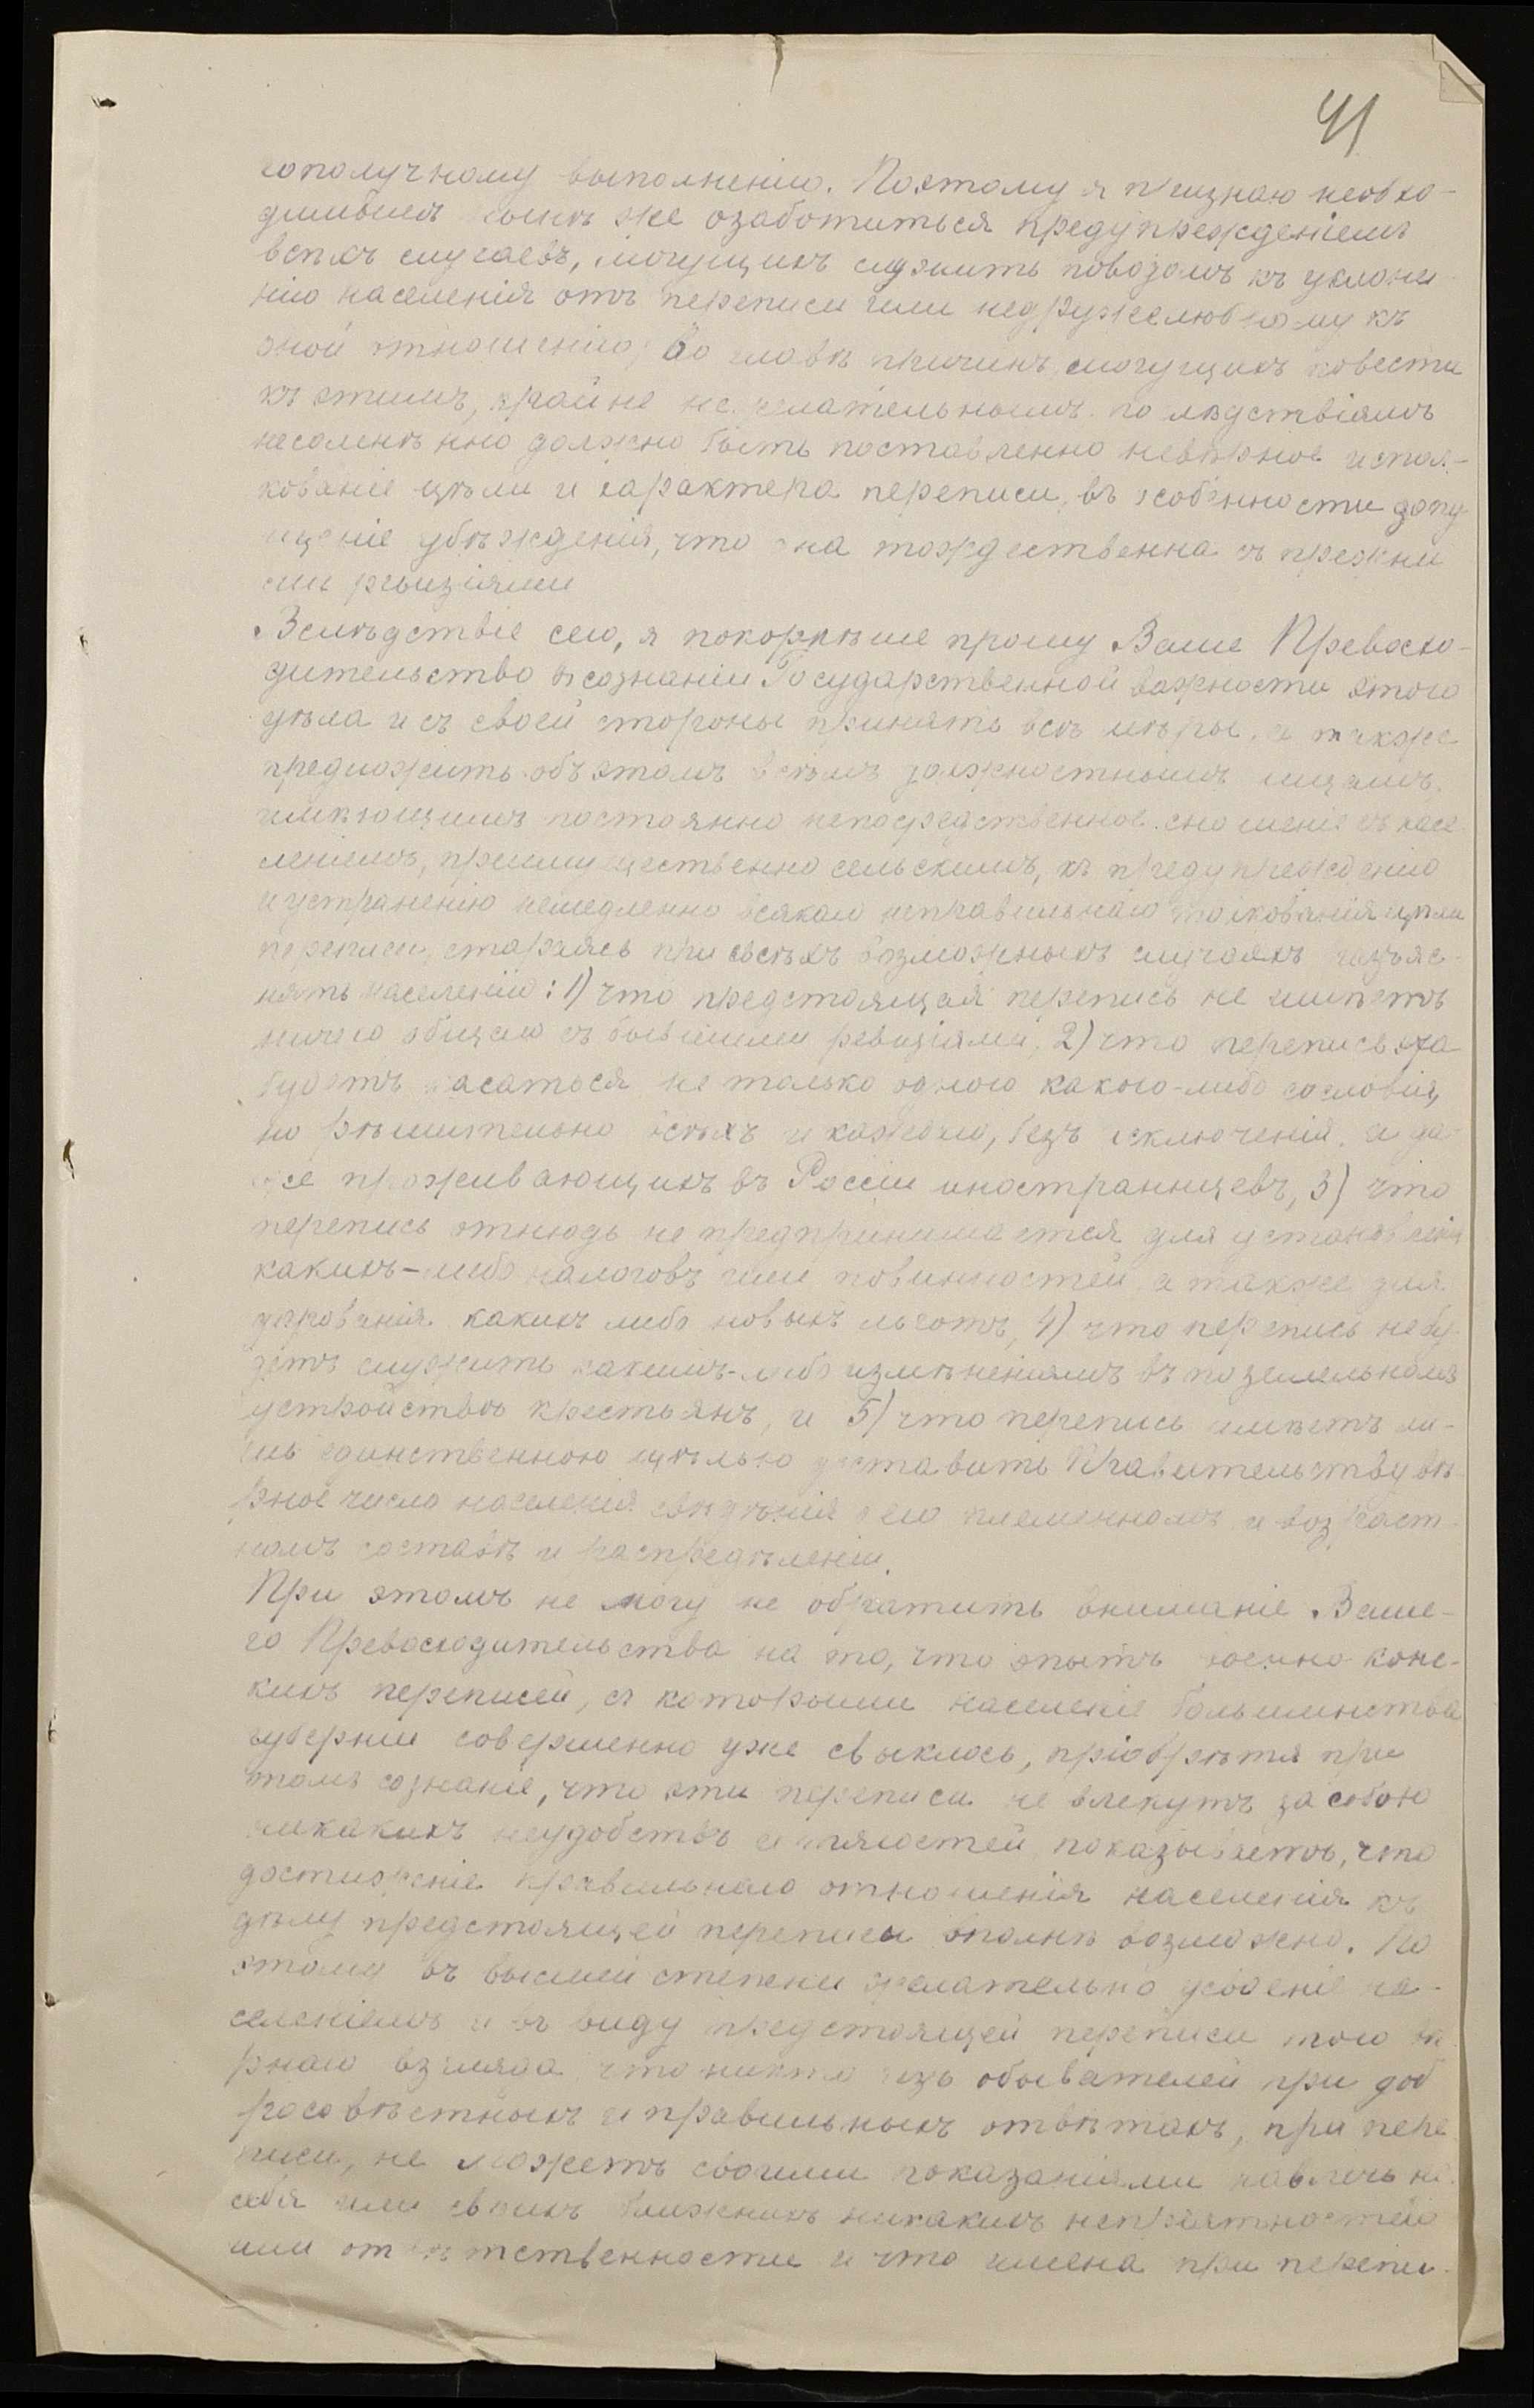 41
гополучному выполненію. Поэтому я признаю необхо-
димымъ нынѣ же озаботиться предупрежденіемъ
всѣхъ случаевъ, могущихъ служить поводомъ къ уклоне
нію населенія отъ переписи или недружелюбному къ
оной отношенію; Во главѣ причинъ, могущихъ повести
къ этимъ, крайне нежелательнымъ послѣдствіямъ
несомнѣнно должно быть поставленно невѣрное истол-
кованіе цѣли и характера переписи, въ особенности допу
щеніе убѣжденія, что она тождественна съ прежни
ми ревизіями
Вслѣдствіе сего, я покорнѣше прошу Ваше Превосхо-
дительство въ сознаніи Государственной важности этого
дѣла и съ своей стороны принять всѣ мѣры, а также
предложить объ этомъ всѣмъ должностнымъ лицамъ,
имѣющимъ постоянно непосредственное сношеніе съ насе
леніемъ, преимущественно сельскимъ, къ предупрежденію
и устраненію немедленно всякаго неправильнаго толкованія цѣли
переписи, стараясь при всѣхъ возможныхъ случаяхъ разъяс-
нять населенію: 1) что предстоящая перепись не имѣетъ
ничего общаго съ бывшими ревизіями, 2) что перепись эта
будетъ касаться не только одного какого-либо сословія,
но рѣшительно всѣхъ и каждаго, безъ исключенія, и да
же проживающихъ въ Россіи иностранцевъ, 3) что
перепись отнюдь не предпринимается для установленія
какихъ-либо налоговъ или повинностей, а также для
дарованія какихъ либо новыхъ льготъ, 4) что перепись не бу
детъ служить какимъ-либо измѣненіямъ въ поземельномъ
устройствѣ крестьянъ, и 5) что перепись имѣетъ ли-
шь единственною цѣлью доставить Правительству вѣ
рное число населенія свѣдѣнія о его племенномъ и возраст
номъ составѣ и распредѣленіи.
При этомъ не могу не обратить вниманіе Ваше-
го Превосходительства на то, что опытъ военно-конс-
кихъ переписей, съ которыми населеніе большинства
губерніи совершенно уже свыклось, пріобрѣтя при
томъ сознаніе, что эти переписи не влекутъ за собою
никакихъ неудобствъ и тягостей, показываетъ, что
достиженіе правильнаго отношенія населенія къ
дѣлу предстоящей переписи вполнѣ возможно. По
этому въ высшей степени желательно усвоеніе на-
селеніемъ и въ виду предстоящей переписи того вѣ
рнаго взгляда что никто изъ обывателей при доб
росовѣстныхъ и правильныхъ отвѣтахъ, при пере
писи, не можетъ своими показаніями навлечь на
себя или своихъ ближнихъ никакихъ непріятностей
или отвѣтственности и что имена при перепи-